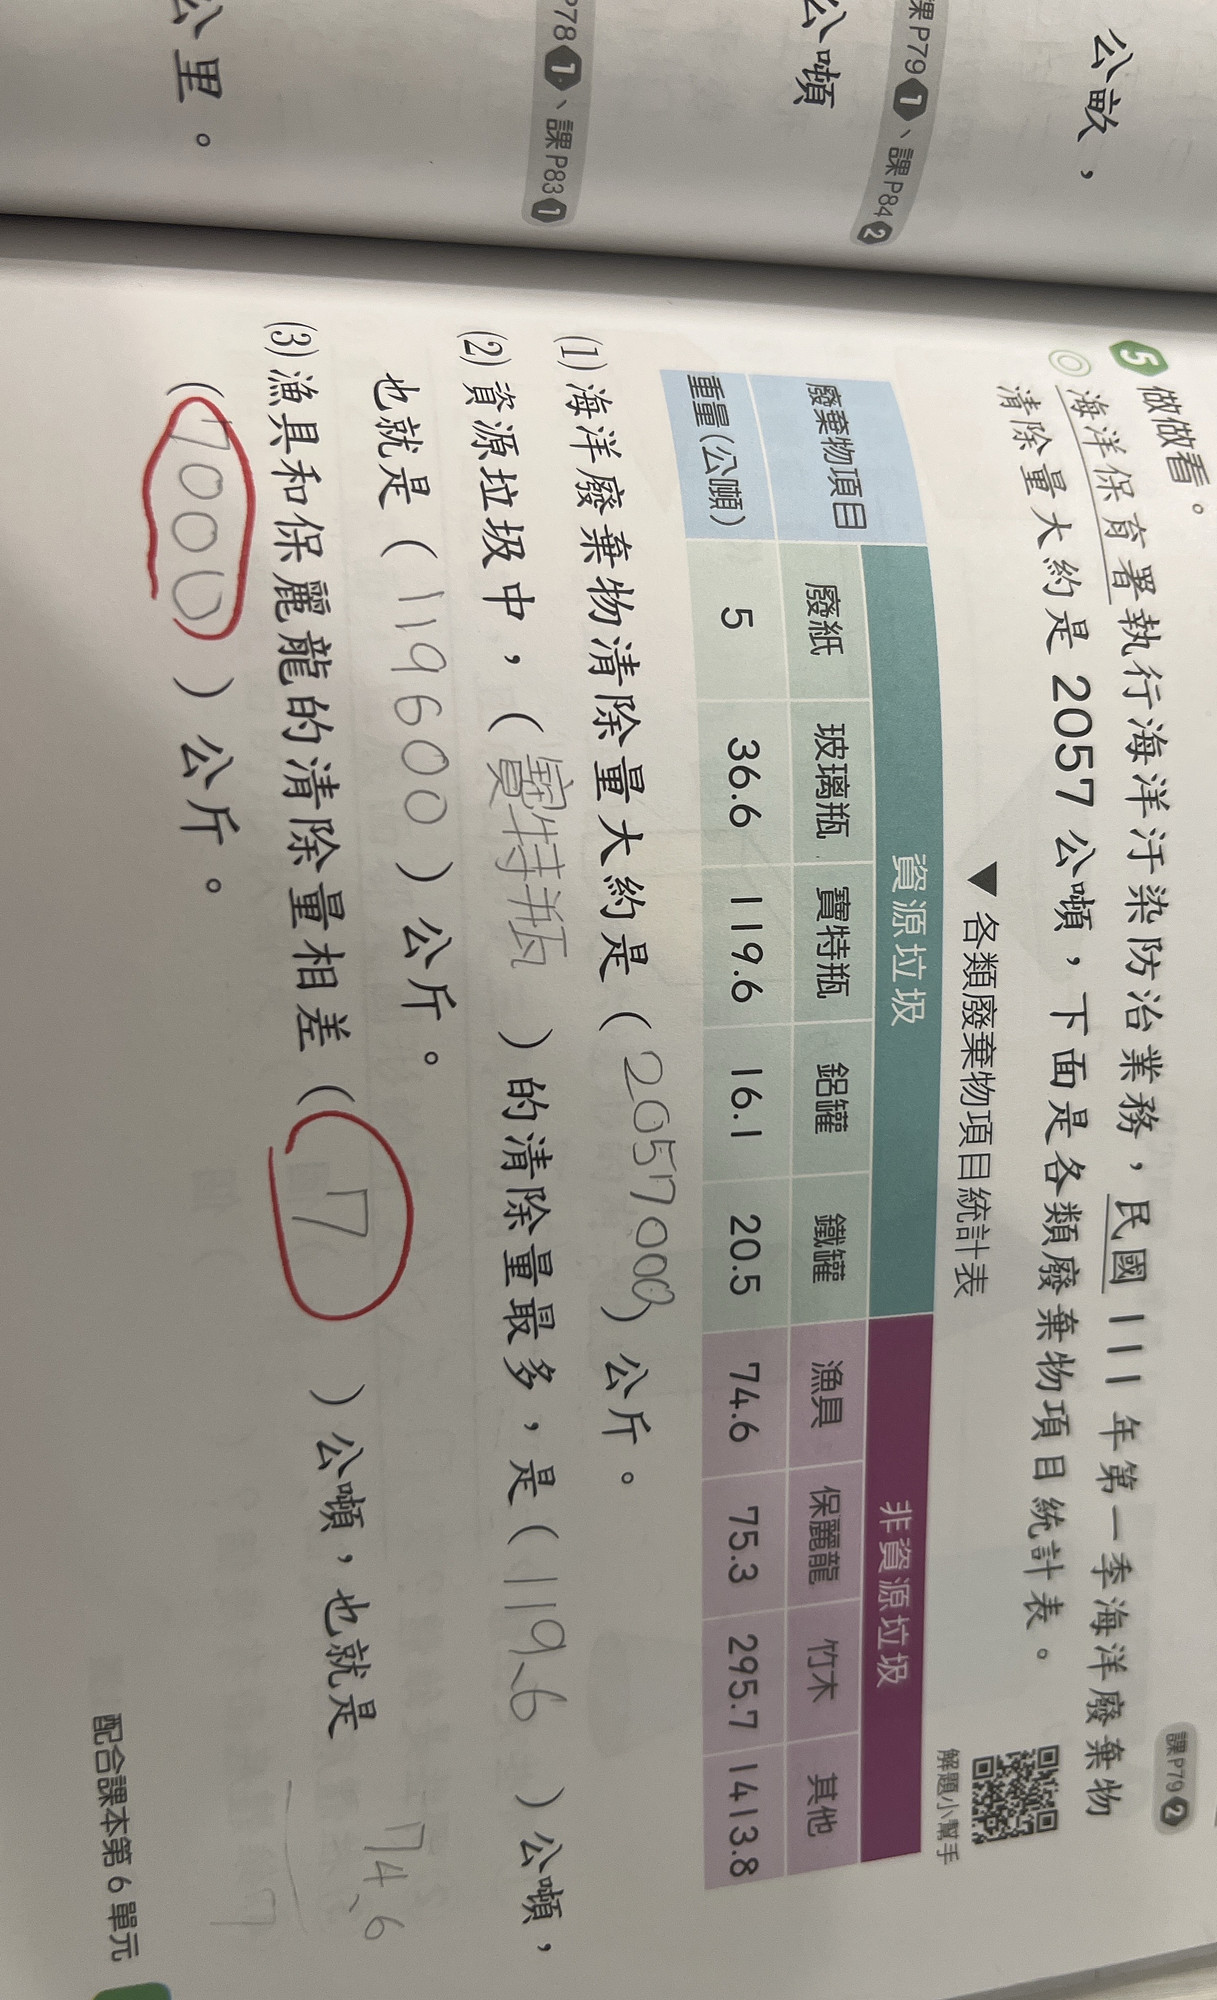 公畝，
課P79 1、課P84 2
公噸
P78 1、課P83 1
公里。
5 做做看。
課P79 2
海洋保育署執行海洋汙染防治業務，民國 111 年第一季海洋廢棄物
清除量大約是 2057 公噸，下面是各類廢棄物項目統計表。
解題小幫手
▼各類廢棄物項目統計表
廢棄物項目 資源垃圾 非資源垃圾
廢紙 玻璃瓶 寶特瓶 鋁罐 鐵罐 漁具 保麗龍 竹木 其他
重量(公噸) 5 36.6 119.6 16.1 20.5 74.6 75.3 295.7 1413.8
(1) 海洋廢棄物清除量大約是（2057000）公斤。
(2) 資源垃圾中，（寶特瓶）的清除量最多，是（119.6）公噸，
也就是（119600）公斤。
(3) 漁具和保麗龍的清除量相差（7）公噸，也就是
（7000）公斤。
74.6
7
配合課本第 6 單元